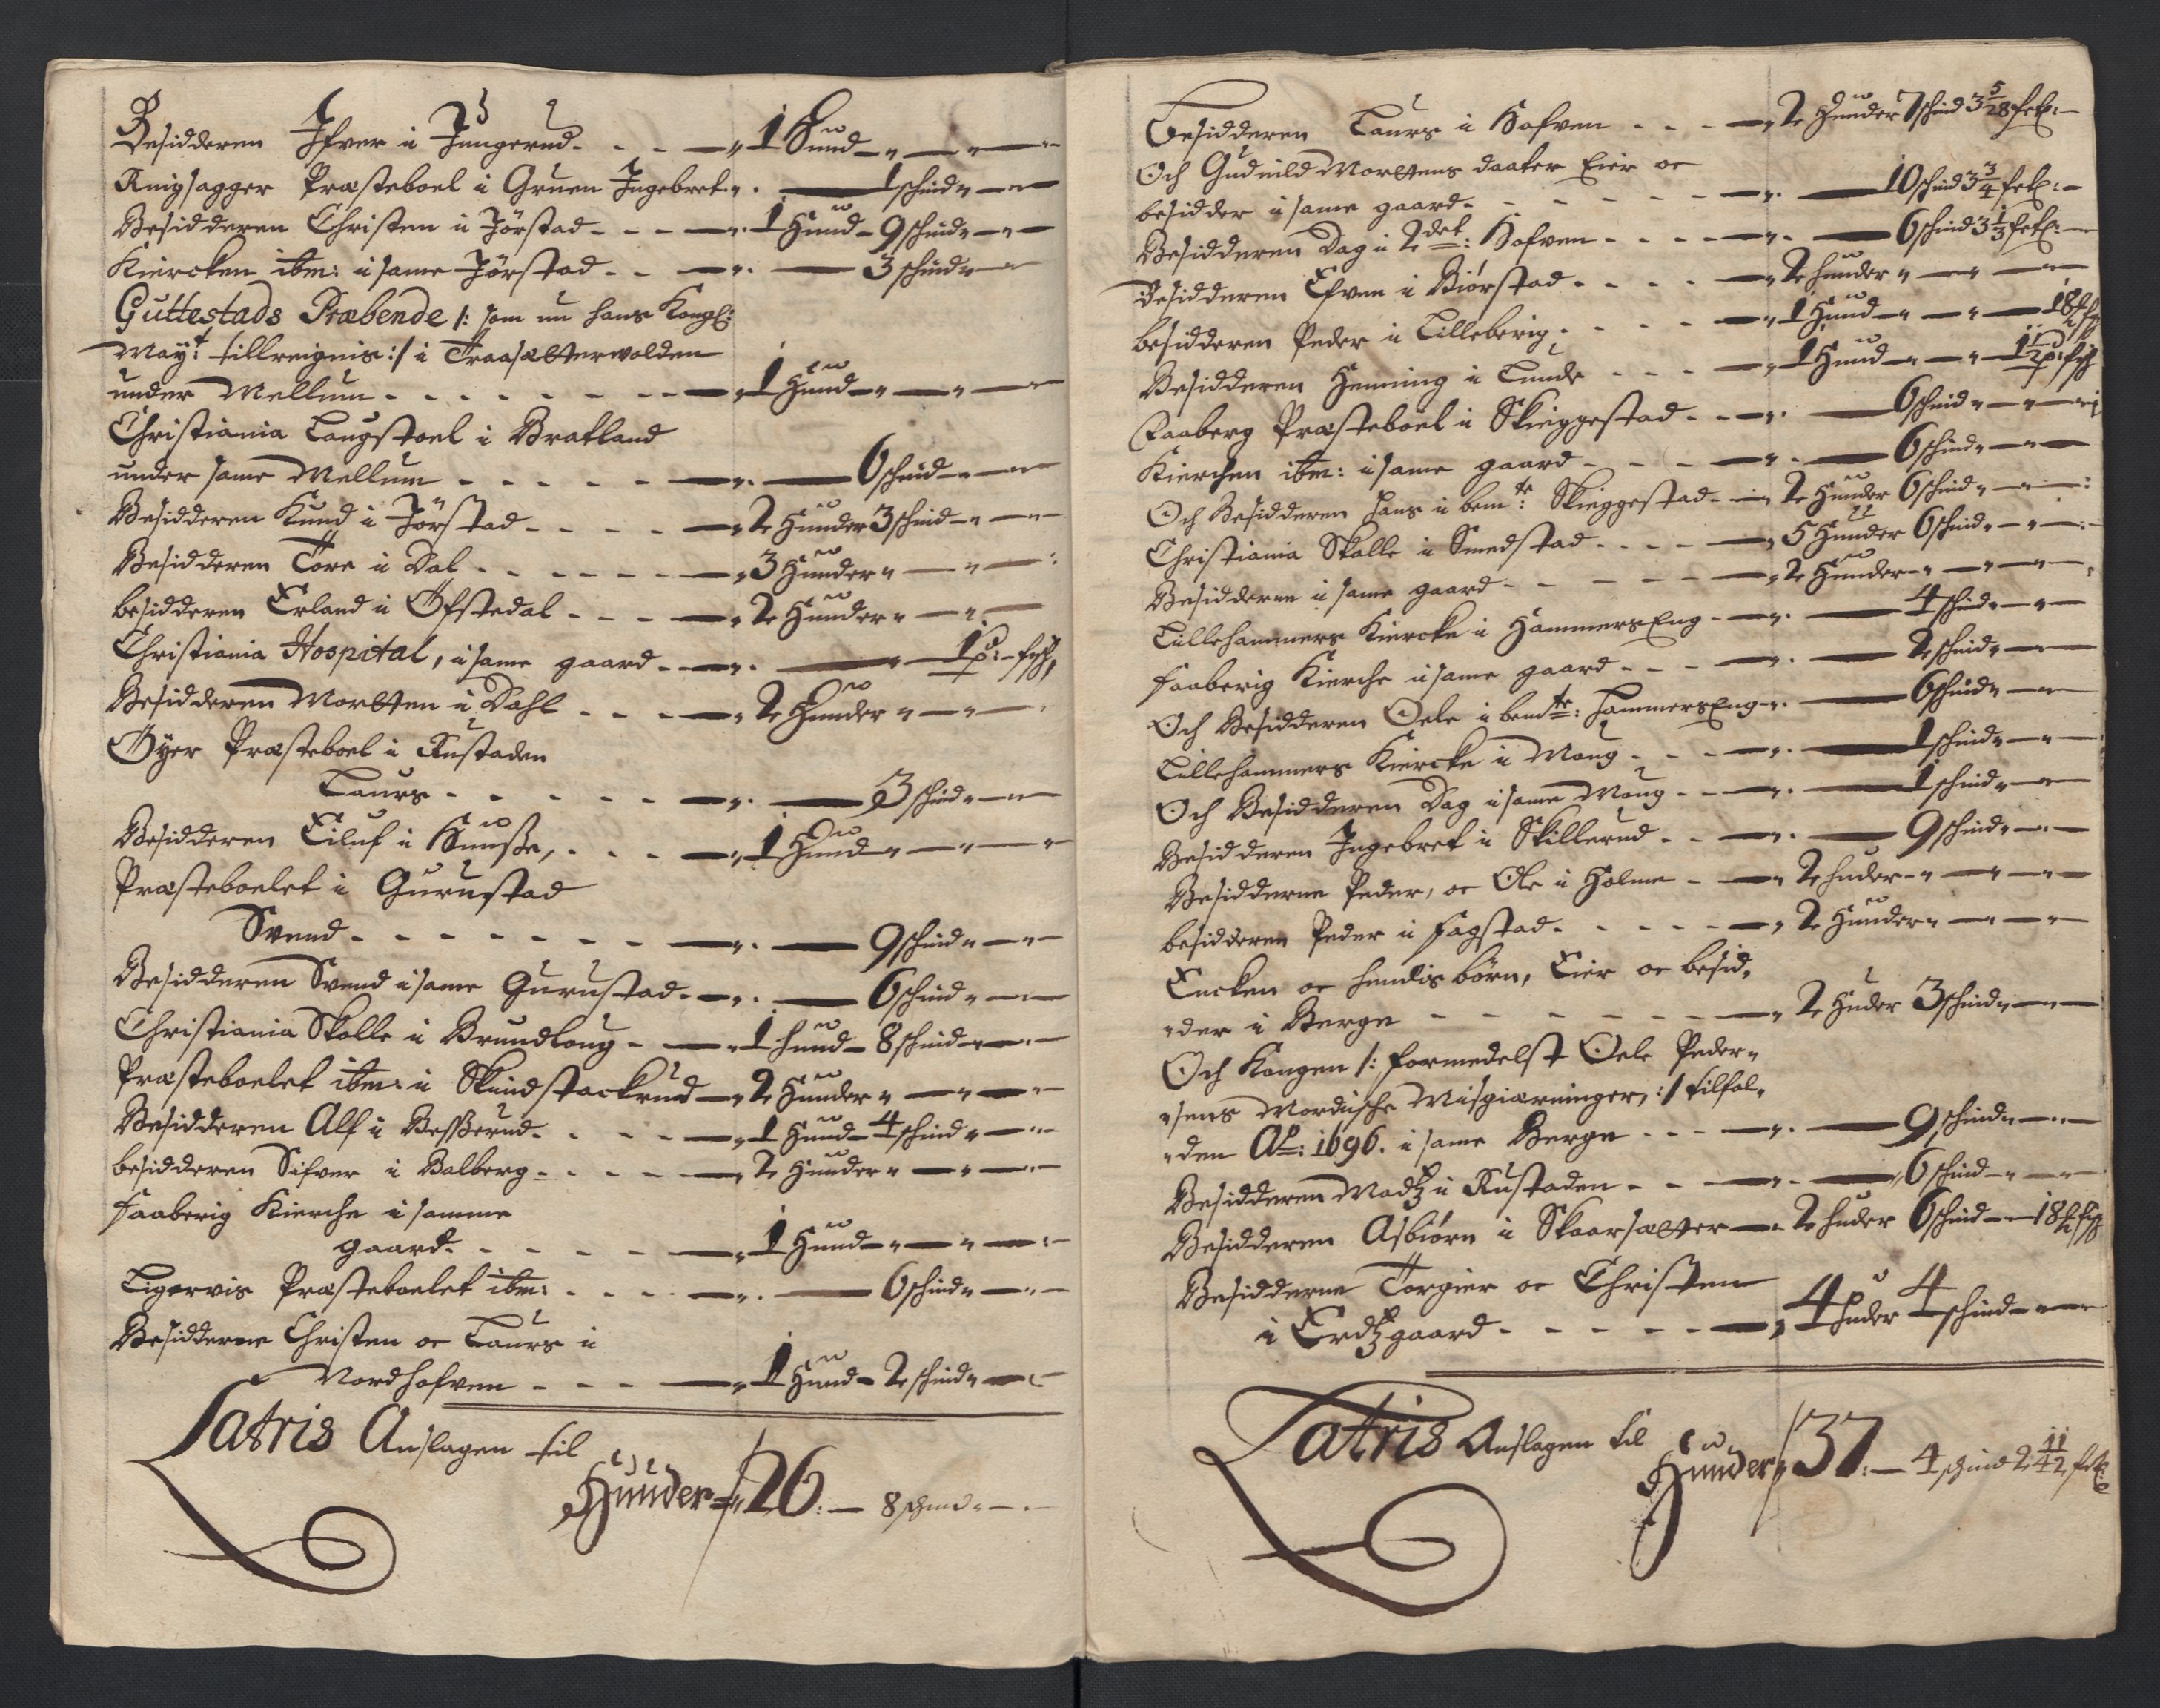 Besidderen Ifver i Jungerud - - - " 1 Hund - " - " -
Ringsagger Præsteboel i Gruen Ingebret " - 1 schind " -
Besidderen Christen i Jörstad - - - 1 Hund - 9 schind " -
Kiercken ibm: i same Jörstad - - " - 3 schind " -
Guttestads Præbende /: som nu hans Kongl:
Mayt: tillreignis :/ i Traasætterwolden
under Mellum - - - - - - " 1 Hund - " - " -
Christiania Laugstoel i Bratland
under same Mellum - - - - " - 6 schind - " -
Besidderen Knud i Jörstad - - - - " 2 Hunder 3 schind - " -
Besidderen Tore i Dal - - - - - " 3 Hunder " - " -
besidderen Erland i Öfstedal - - - " 2 Hunder " - " -
Christiania Hospital, i same gaard - - " - " - 1 p: fisk,
Besidderen Mortten i Dahl - - - " 2 Hunder " - " -
Öyer Præsteboel i Rustaden
Laurs - - - - - " - 3 schind " -
Besidderen Eiluf i Sunße, - - - " 1 Hund - " - " -
Præsteboelet i Gurustad
Svend - - - - - - - " - 9 schind " -
Besidderen Svend i same Gurustad - " - 6 schind " -
Christiania Skolle i Brundloug - " 1 hund - 8 schind - " -
Præsteboelet ibm: i Skundstackrud - " 2 Hunder " - " -
Besidderen Alf i Beßerud - - - " 1 Hund - 4 schind " -
besidderen Sifver i Balberg - - - - " 2 Hunder " - " -
Faaberig Kierche i samme
gaard - - - - - " 1 Hund - " - " -
Ligervis Præsteboelet ibm: - - - " - 6 schind " -
Besidderne Christen oc Laurs i
Nordhofven - - - " 1 Hund - 2 schind " -
Latris Anslagen til
Hunder = " 26: - 8 schind " -
Besidderen Laurs i Hofven - - - " 2 Hunder 7 schind 3 5/28 feh: -
Och Gudnild Mortens daater Eier oc
besidder i same gaard - - - - - " - 10 schind 3 3/4 feh: -
Besidderen Dag i 2det: Hofven - - - - " - 6 schind 3 1/3 feh: -
Besidderen Efven i Biörstad - - - - " 2 hunder " - " -
besidderen Peder i Lilleberig - - - - " 1 Hund - " - " - 18
Besidderen Henning i Lunde - - - " 1 Hund - " - " 1 1/2 p: fisk
Faaberg Præsteboel i Skieggestad - - " - 6 schind " - " -
Kierchen ibm: i same gaard - - - " - 6 schind " -
Och Besidderen Hans i bemte: Skieggestad - " 2 Hunder 6 schind " - " -
Christiania Skolle i Smedstad - - - - " 5 Hunder 6 schind " - " -
Besidderne i same gaard - - - - " 2 Hunder - " - " -
Lillehammers Kiercke i HammersEng - " - 4 schind " - " -
Faaberig Kierche i same gaard - - - " - 2 schind " -
Och Besidderen Oele i bemte: HammersEng " - 6 schind " -
Lillehammers Kiercke i Moug - - - " - 1 schind " - " -
Och Besidderen Dag i same Moug - - " - 1 schind " -
Besidderen Ingebret i Skillerud - - " - 9 schind " -
Besidderne Peder, oc Ole i Holme - " 2 huder - " - " -
besidderen Peder i Fagstad - - - - " 2 Hunder " - " -
Encken oc hendis börn, Eier oc besid,
"der i Berge - - - - - - " 2 Huder 3 schind " -
Och Kongen /: formedelst Oele Peder"
"sens Mordische Misgiærninger, :/ tilfal,
"den Ao: 1696. i same Berge - - - " - 9 schind " -
Besidderen Madtz i Rustaden - - " - 6 schind - " -
Besidderen Asbiörn i Skaarsætter - " 2 huder 6 schind - 18
Besidderne Torgier oc Christen
i Erdtzgaard - - - - - " 4 huder 4 schind - " -
Latris Anslagen til
Hunder " 37: - 4 schind 2 11/42 feh: